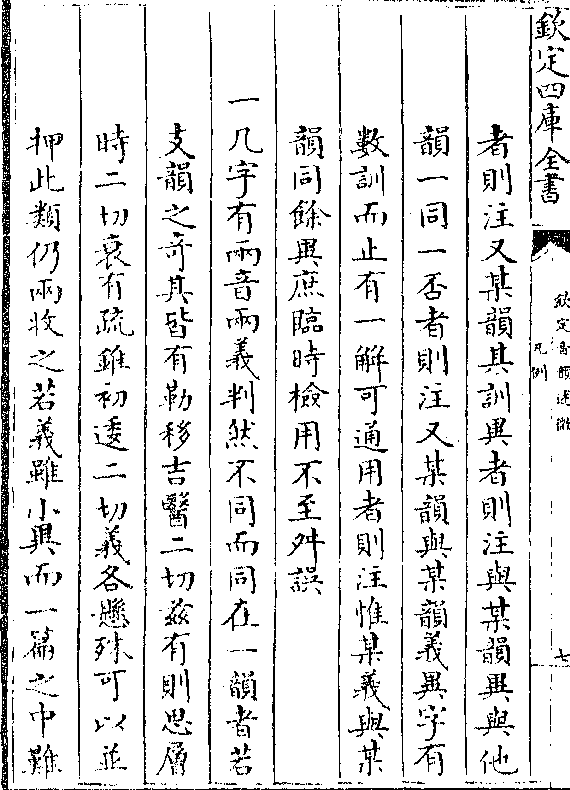 欽定四庫全書
欽定音韻述微
凡例
七
者則注又某韻其訓異者則注與某韻異與他
韻一同一否者則注又某韻與某韻義異字有
數訓而止有一解可通用者則注惟某義與某
韻同餘異庶臨時檢用不至舛誤
一凡字有兩音兩義判然不同而同在一韻者若
支韻之奇其皆有勒移吉醫二切兹有則思層
時二切衰有疏錐初逶二切義各懸殊可以並
押此類仍兩收之若義雖小異而一篇之中難